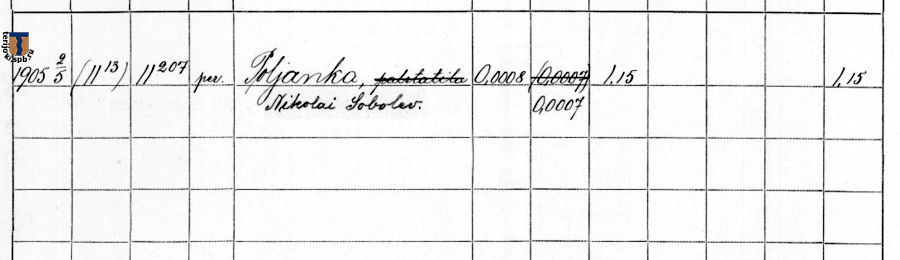 terijoki.spb.ru
1905 2/5 (11 13) 11 207 per. Poljanka, palstatila 0,0008 (0,0007) 1,15 1,15
Nikolai Sobolev. 0,0007